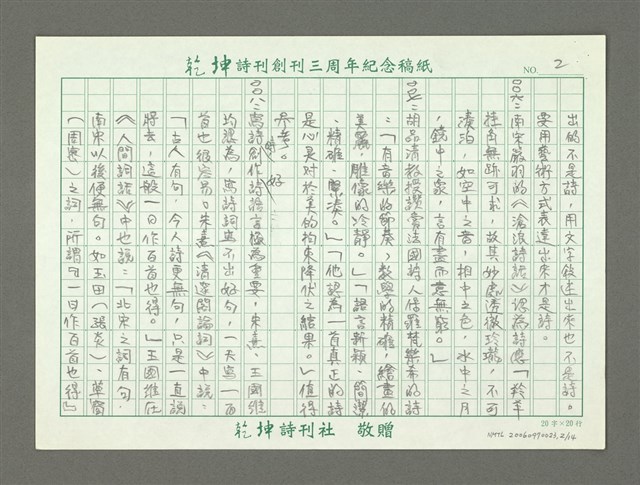 乾坤詩刊創刊三周年紀念稿紙
NO. 2
出的不是詩，用文字敘述出來也不是詩。
要用藝術方式表達出來才是詩。
南宋嚴羽的《滄浪詩話》認為詩應「羚羊
掛角無跡可求，故其妙處透徹玲瓏，不可
湊泊，如空中之音，相中之色，水中之月
，鏡中之象，言有盡而意無窮。」
胡品清教授讚賞法國詩人保羅梵樂希的詩
：「有音樂的節奏，數學的精確，繪畫的
美麗，雕像的冷靜。」「語言新穎、簡潔
、精確、緊湊。」「他認為一首真正的詩
是心是對於美的拘束降伏之結果。」值得
參考。
寫詩創作詩語言極為重要，朱熹、王國維
均認為，寫詩詞無不出好句，一天寫一百
首也很容易。朱熹《清邃閣論詩》中說：
「古人有句，今人詩更無句，只是一直說
將去，這般一日作百首也得。」王國維在
《人間詞話》中也說：「北宋之詞有句，
南宋以後便無句。如玉田（張炎）、草窗
（周密）之詞，所謂『一日作百首也得』
乾坤詩刊社 敬贈
20字×20行
NMTL20060990023, 2/14